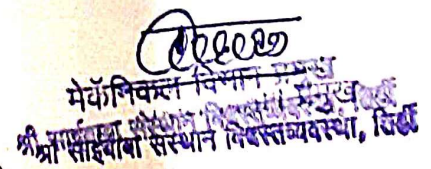 मेकॅनिकल विभाग प्रमुख
श्री साईबाबा संस्थान विश्वस्तव्यवस्था, शिर्डी